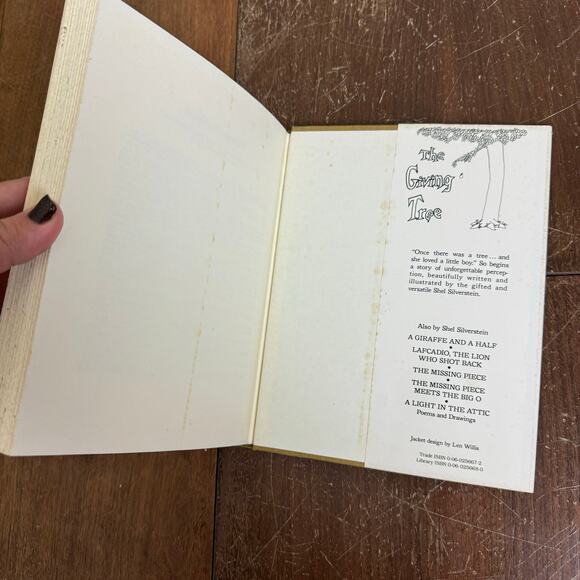 The
Giving
Tree
"Once there was a tree ... and
she loved a little boy." So begins
a story of unforgettable percep-
tion, beautifully written and
illustrated by the gifted and
versatile Shel Silverstein.
Also by Shel Silverstein
A GIRAFFE AND A HALF
•
LAFCADIO, THE LION
WHO SHOT BACK
•
THE MISSING PIECE
•
THE MISSING PIECE
MEETS THE BIG O
•
A LIGHT IN THE ATTIC
Poems and Drawings
Jacket design by Len Willis
Trade ISBN 0-06-025667-2
Library ISBN 0-06-025668-0